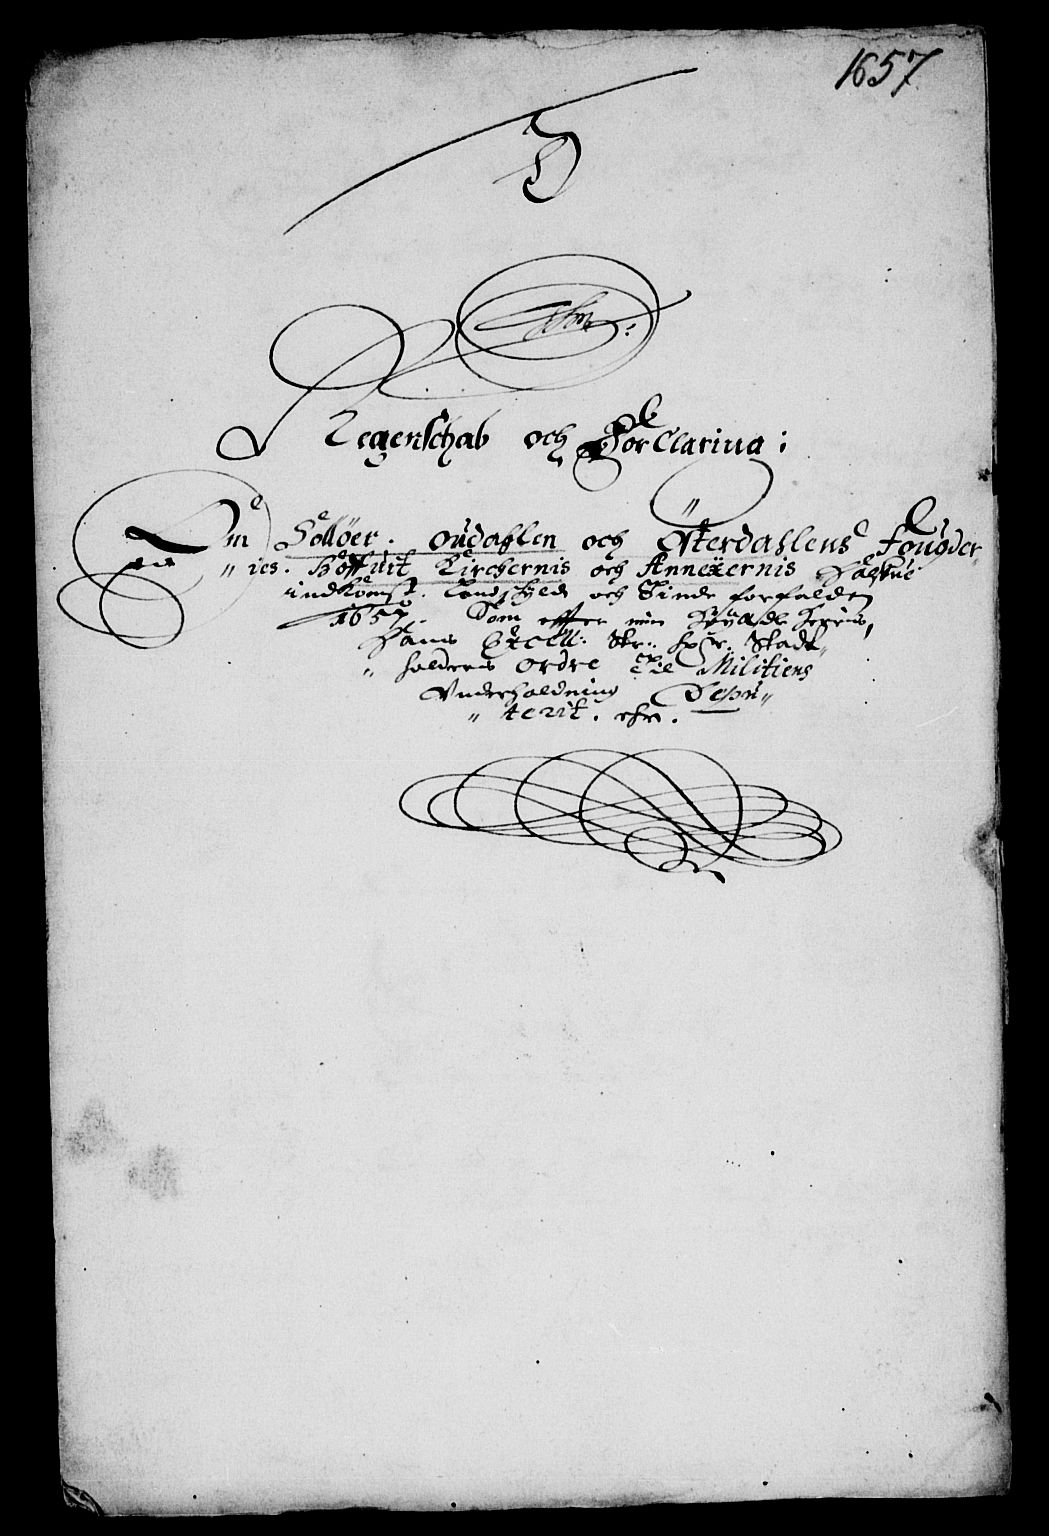 1657
Regenschab och Forclaring:
Om Sollöer. Oudahlen och Österdahlens Fougder„
„ies. Hoffuit Kirchernis och Annexernis Halfue
indkomst. Landschyld och Tinde forfalden
1657. Som effter min gunstig herris,
Hans Excell: Str: hr: Stadt„
„holderens ordre til Militiens
Vnderholdning Depu„
„terit. etc.